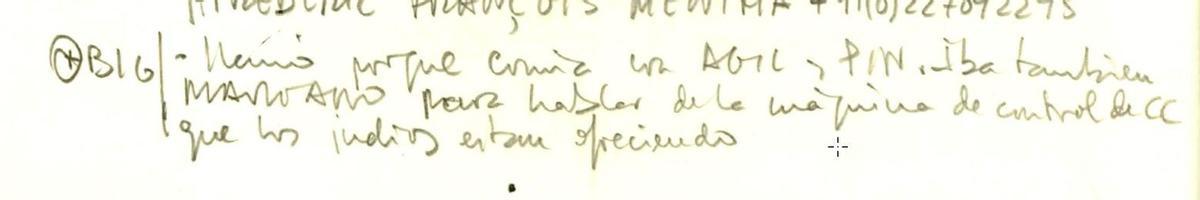 FRANÇOIS +41(0)227092295
⊕ BIG - Llamó porque comía con AGIL y PIN. Iba también
MARIANO para hablar de la máquina de control de CC
que los indios estan ofreciendo